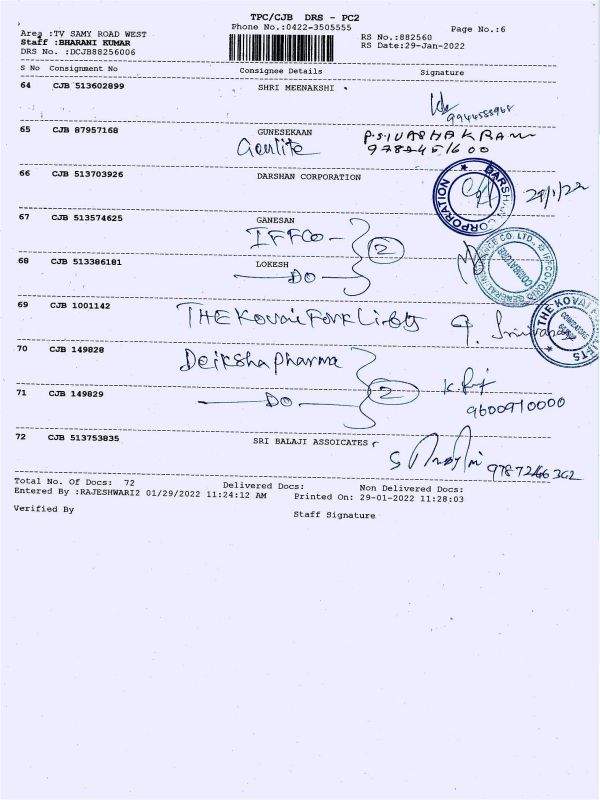 TPC/CJB DRS - PC2
Phone No.:0422-3505555
Page No.:6
Area :TV SAMY ROAD WEST
Staff :BHARANI KUMAR
DRS No. :DCJB88256006
RS No.:882560
RS Date:29-Jan-2022
S No Consignment No Consignee Details Signature
64 CJB 513602899 SHRI MEENAKSHI
65 CJB 87957168 GUNESEKAAN
66 CJB 513703926 DARSHAN CORPORATION
DARSHAN CORPORATION
29/1/22
67 CJB 513574625 GANESAN
IFFCO - 2
68 CJB 513386181 LOKESH
DO
COIMBATORE
69 CJB 1001142 THE Kovai Fork Lifts
THE KOVAI FORK LIFTS
70 CJB 149828 Deiksha pharma
71 CJB 149829 DO 2
9600910000
72 CJB 513753835 SRI BALAJI ASSOICATES
Total No. Of Docs: 72 Delivered Docs: Non Delivered Docs:
Entered By :RAJESHWARI2 01/29/2022 11:24:12 AM Printed On: 29-01-2022 11:28:03
Verified By Staff Signature